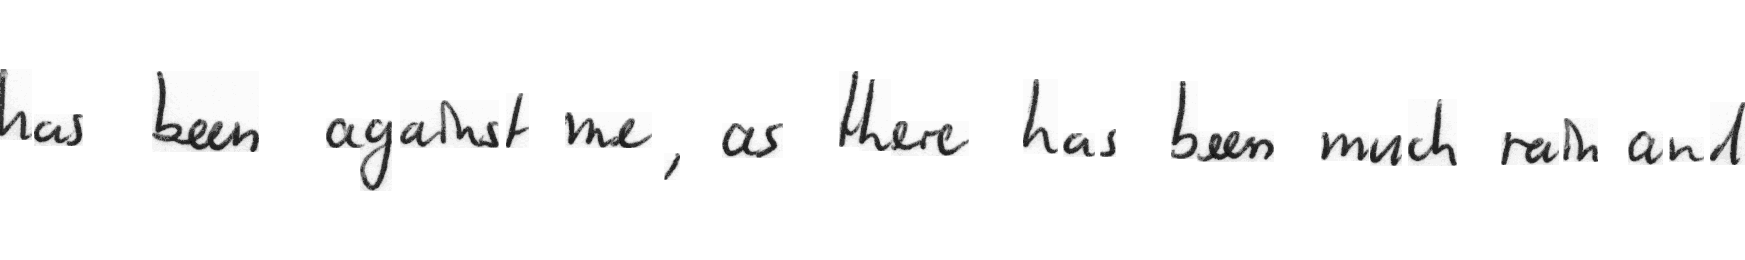 has been against me, as there has been much rain and